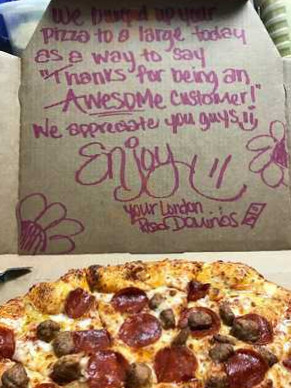 We bumped up your
pizza to a large today
as a way to say
"Thanks" for being an
AWESOMe customer!"
We appreciate you guys
Enjoy
your London
Road DOMINOS